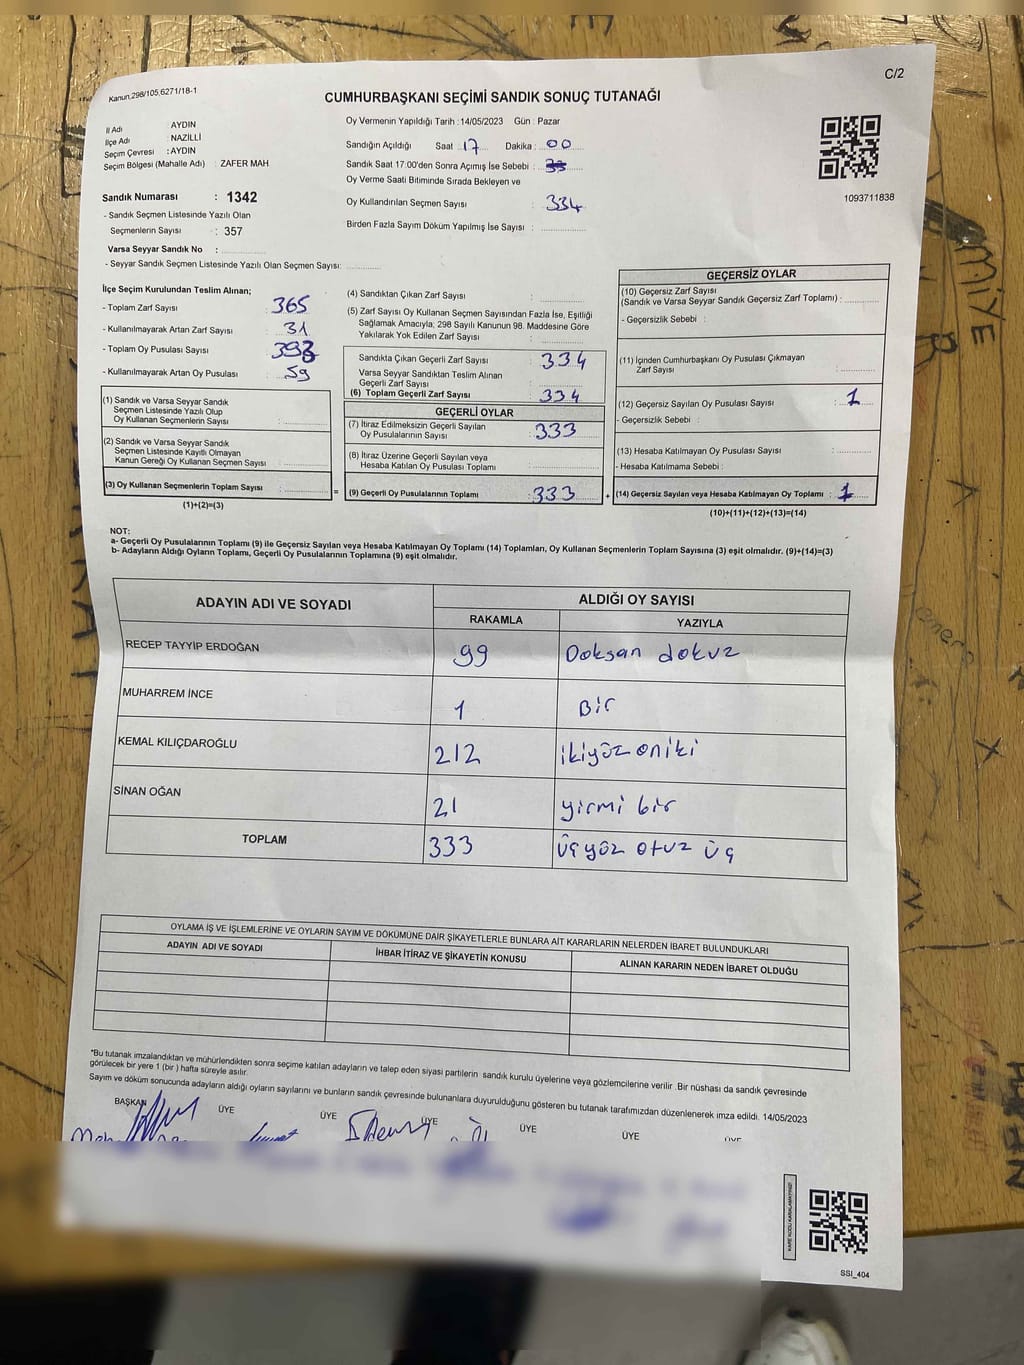 C/2
Kanun,298/105,6271/18-1
CUMHURBAŞKANI SEÇİMİ SANDIK SONUÇ TUTANAĞI
İl Adı : AYDIN
İlçe Adı : NAZİLLİ
Seçim Çevresi : AYDIN
Seçim Bölgesi (Mahalle Adı) : ZAFER MAH
Oy Vermenin Yapıldığı Tarih :14/05/2023 Gün : Pazar
Sandığın Açıldığı Saat : 17 Dakika : 00
Sandık Saat 17:00'den Sonra Açımış İse Sebebi :
Oy Verme Saati Bitiminde Sırada Bekleyen ve
Oy Kullandırılan Seçmen Sayısı : 334
Birden Fazla Sayım Döküm Yapılmış İse Sayısı :
1093711838
Sandık Numarası : 1342
- Sandık Seçmen Listesinde Yazılı Olan
Seçmenlerin Sayısı : 357
Varsa Seyyar Sandık No :
- Seyyar Sandık Seçmen Listesinde Yazılı Olan Seçmen Sayısı:
İlçe Seçim Kurulundan Teslim Alınan;
- Toplam Zarf Sayısı : 365
- Kullanılmayarak Artan Zarf Sayısı : 31
- Toplam Oy Pusulası Sayısı :
- Kullanılmayarak Artan Oy Pusulası : 59
(1) Sandık ve Varsa Seyyar Sandık
Seçmen Listesinde Yazılı Olup
Oy Kullanan Seçmenlerin Sayısı :
(2) Sandık ve Varsa Seyyar Sandık
Seçmen Listesinde Kayıtlı Olmayan
Kanun Gereği Oy Kullanan Seçmen Sayısı :
(3) Oy Kullanan Seçmenlerin Toplam Sayısı : =
(1)+(2)=(3)
(4) Sandıktan Çıkan Zarf Sayısı :
(5) Zarf Sayısı Oy Kullanan Seçmen Sayısından Fazla İse, Eşitliği
Sağlamak Amacıyla, 298 Sayılı Kanunun 98. Maddesine Göre
Yakılarak Yok Edilen Zarf Sayısı :
Sandıkta Çıkan Geçerli Zarf Sayısı : 334
Varsa Seyyar Sandıktan Teslim Alınan
Geçerli Zarf Sayısı :
(6) Toplam Geçerli Zarf Sayısı : 334
GEÇERLİ OYLAR
(7) İtiraz Edilmeksizin Geçerli Sayılan
Oy Pusulalarının Sayısı : 333
(8) İtiraz Üzerine Geçerli Sayılan veya
Hesaba Katılan Oy Pusulası Toplamı :
(9) Geçerli Oy Pusulalarının Toplamı : 333 +
GEÇERSİZ OYLAR
(10) Geçersiz Zarf Sayısı
(Sandık ve Varsa Seyyar Sandık Geçersiz Zarf Toplamı) :
- Geçersizlik Sebebi :
(11) İçinden Cumhurbaşkanı Oy Pusulası Çıkmayan
Zarf Sayısı :
(12) Geçersiz Sayılan Oy Pusulası Sayısı : 1
- Geçersizlik Sebebi :
(13) Hesaba Katılmayan Oy Pusulası Sayısı :
- Hesaba Katılmama Sebebi :
(14) Geçersiz Sayılan veya Hesaba Katılmayan Oy Toplamı : 1
(10)+(11)+(12)+(13)=(14)
NOT:
a- Geçerli Oy Pusulalarının Toplamı (9) ile Geçersiz Sayılan veya Hesaba Katılmayan Oy Toplamı (14) Toplamları, Oy Kullanan Seçmenlerin Toplam Sayısına (3) eşit olmalıdır. (9)+(14)=(3)
b- Adayların Aldığı Oyların Toplamı, Geçerli Oy Pusulalarının Toplamına (9) eşit olmalıdır.
ADAYIN ADI VE SOYADI
ALDIĞI OY SAYISI
RAKAMLA YAZIYLA
RECEP TAYYİP ERDOĞAN 99 Doksan dokuz
MUHARREM İNCE 1 Bir
KEMAL KILIÇDAROĞLU 212 ikiyüz oniki
SİNAN OĞAN 21 yirmi bir
TOPLAM 333 üçyüz otuz üç
OYLAMA İŞ VE İŞLEMLERİNE VE OYLARIN SAYIM VE DÖKÜMÜNE DAİR ŞİKAYETLERLE BUNLARA AİT KARARLARIN NELERDEN İBARET BULUNDUKLARI
ADAYIN ADI VE SOYADI İHBAR İTİRAZ VE ŞİKAYETİN KONUSU ALINAN KARARIN NEDEN İBARET OLDUĞU
*Bu tutanak imzalandıktan ve mühürlendikten sonra seçime katılan adayların ve talep eden siyasi partilerin sandık kurulu üyelerine veya gözlemcilerine verilir .Bir nüshası da sandık çevresinde
görülecek bir yere 1 (bir ) hafta süreyle asılır.
Sayım ve döküm sonucunda adayların aldığı oyların sayılarını ve bunların sandık çevresinde bulunanlara duyurulduğunu gösteren bu tutanak tarafımızdan düzenlenerek imza edildi. 14/05/2023
BAŞKAN ÜYE ÜYE ÜYE ÜYE ÜYE ÜYE
KARE KODU KARALAMAYINIZ!
SSI_404
MİYE